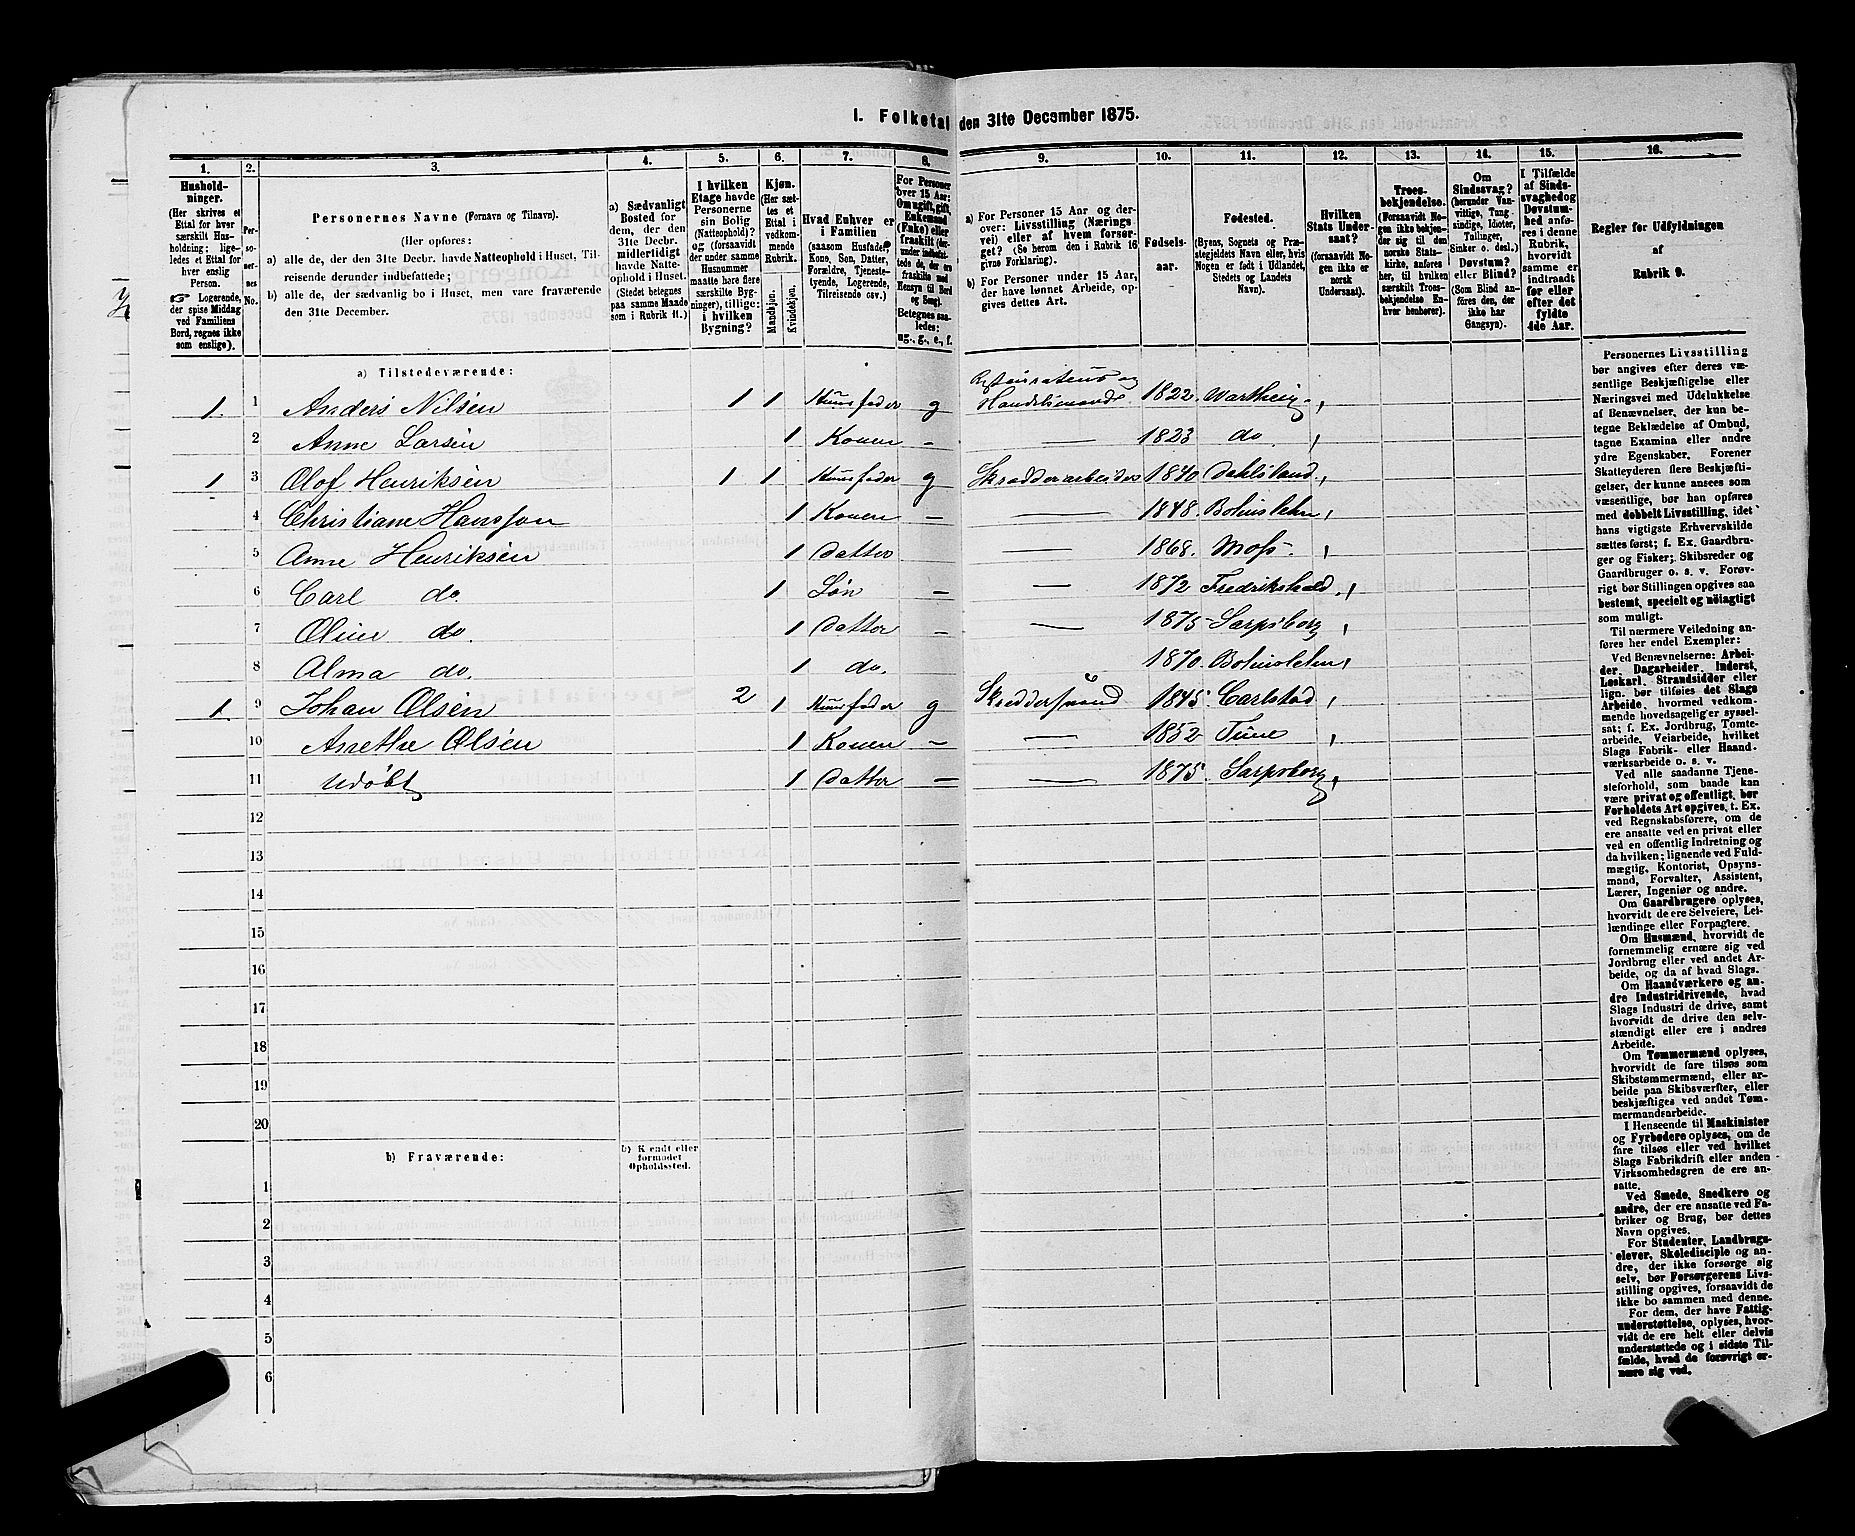 1. Folketal den 31te December 1875.
1. 2. 3. 4. 5. 6. 7. 8. 9. 10. 11. 12. 13. 14. 15. 16.
Hushold-
ninger.
(Her skrives et
Ettal for hver
særskilt Hus-
holdning; lige-
ledes et Ettal for
hver enslig
Person.
☞ Logerende,
der spise Middag
ved Familiens
Bord, regnes ikke
som enslige).
Per-
so-
ner-
nes
No.
Personernes Navne (Fornavn og Tilnavn).
(Her opføres:
a) alle de, der den 31te Decbr. havde Natteophold i Huset, Til-
reisende derunder indbefattede;
b) alle de, der sædvanlig bo i Huset, men vare fraværende
den 31te December.
a) Sædvanligt
Bosted for
dem, der den
31te Decbr.
midlertidigt
havde Natte-
ophold i Huset.
(Stedet betegnes
paa samme Maade
som i Rubrik 11.)
I hvilken
Etage havde
Personerne
sin Bolig
(Natteophold)?
og (forsaavidt
der under samme
Husnummer
maatte høre flere
særskilte Byg-
ninger), tillige:
i hvilken
Bygning?
Kjøn.
(Her sæt-
tes et
Ettal i
vedkom-
mende
Rubrik.
Mandkjøn.
Kvindekjøn.
Hvad Enhver er
i Familien
(saasom Husfader,
Kone, Søn, Datter,
Forældre, Tjeneste-
tyende, Logerende,
Tilreisende osv.)
For Personer
over 15 Aar:
Om ugift, gift,
Enkemand
(Enke) eller
fraskilt (der-
under indbefat-
tede de, der ere
fraskilte med
Hensyn til Bord
og Seng).
Betegnes saa-
ledes:
ug., g., e., f.
a) For Personer 15 Aar og der-
over: Livsstilling (Nærings
vei) eller af hvem forsør-
get? (Se herom den i Rubrik 16
givne Forklaring).
b) For Personer under 15 Aar,
der have lønnet Arbeide, op-
gives dettes Art.
Fødsels-
aar.
Fødested.
(Byens, Sognets og Præ-
stegjeldets Navn eller, hvis
Nogen er født i Udlandet,
Stedets og Landets
Navn).
Hvilken
Stats Under-
saat?
(forsaavidt No-
gen ikke er
norsk
Undersaat).
Troes-
bekjendelse.
(Forsaavidt No-
gen ikke bekjen-
der sig til den
norske Stats-
kirke, anføres
her, til hvilken
særskilt Troes-
bekjendelse En-
hver henhører).
Om
Sindssvag?
(herunder Van-
vittige, Tung-
sindige, Idioter,
Tullinger,
Sinker o. desl.)
Døvstum?
eller Blind?
(Som Blind an-
føres den, der
ikke har
Gangsyn).
I Tilfælde
af Sinds-
svaghed og
Døvstum-
hed anfø-
res i denne
Rubrik,
hvorvidt
samme er
indtraadt
før eller
efter det
fyldte
4de Aar.
Regler for Udfyldningen
af
Rubrik 9.
a) Tilstedeværende:
1 1 Anders Nilsen 1 1 Huusfader g Restaurateur og Handelsmand 1822 Wartheig
2 Anne Larsen 1 Konen – — 1823 do
1 3 Olof Henriksen 1 1 Huusfader g Skrædderarbeider 1840 Dahlsland
4 Christiane Hansson 1 Konen – — 1848 Bohuslehn
5 Anne Henriksen 1 Datter — 1868 Moss
6 Carl do. 1 Søn – — 1872 Fredrikshald
7 Oline do. 1 Datter – — 1875 Sarpsborg
8 Alma do. 1 do. 1870 Bohuslehn
1 9 Johan Olsen 2 1 Huusfader g Skreddersvend 1845 Carlstad
10 Anethe Olsen 1 Konen – — 1852 Tune
11 Udøbt 1 Datter – — 1875 Sarpsborg
12
13
14
15
16
17
18
19
20
b) Fraværende:
b) Kjendt eller
formodet
Opholdssted.
1
2
3
4
5
6
Personernes Livsstilling
bør angives efter deres væ-
sentlige Beskjæftigelse eller
Næringsvei med Udelukkelse
af Benævnelser, der kun be-
tegne Beklædelse af Ombud,
tagne Examina eller andre
ydre Egenskaber. Forener
Skatteyderen flere Beskjæfti-
gelser, der kunne ansees som
væsentlige, bør han opføres
med dobbelt Livsstilling, idet
hans vigtigste Erhvervskilde
sættes først; f. Ex. Gaardbru-
ger og Fisker; Skibsreder og
Gaardbruger o. s. v. Forøv-
rigt bør Stillingen opgives saa
bestemt, specielt og nöiagtigt
som muligt.
Til nærmere Veiledning an-
føres her endel Exempler:
Ved Benævnelserne: Arbei-
der, Dagarbeider, Inderst,
Løskarl, Strandsidder eller
lign. bør tilføies det Slags
Arbeide, hvormed vedkom-
mende hovedsagelig er syssel-
sat; f. Ex. Jordbrug, Tomte-
arbeide, Veiarbeide, hvilket
Slags Fabrik- eller Haand-
værksarbeide o. s. v.
Ved alle saadanne Tjene-
steforhold, som baade kan
være privat og offentligt, bør
Forholdets Art opgives, t. Ex.
ved Regnskabsførere, om de
ere ansatte ved en privat eller
ved en offentlig Indretning og
da hvilken; lignende ved Fuld-
mægtig, Kontorist, Opsyns-
mand, Forvalter, Assistent,
Lærer, Ingeniør og andre.
Om Gaardbrugere oplyses,
hvorvidt de ere Selveiere, Lei-
lændinge eller Forpagtere.
Om Husmænd, hvorvidt de
fornemmelig ernære sig ved
Jordbrug eller ved andet Ar-
beide, og da af hvad Slags.
Om Haandværkere og an-
dre Industridrivende, hvad
Slags Industri de drive, samt
hvorvidt de drive den selv-
stændigt eller ere i andres
Arbeide.
Om Tømmermænd oplyses,
hvorvidt de fare tilsøs som
Skibstømmermænd, eller ar-
beide paa Skibsværfter, eller
beskjæftiges ved andet Tøm-
mermandsarbeide.
I Henseende til Maskinister
og Fyrbødere oplyses, om de
fare tilsøs eller ved hvilket
Slags Fabrikdrift eller anden
Virksomhedsgren de ere an-
satte.
Ved Smede, Snedkere og
andre, der ere ansatte ved Fa-
briker og Brug, bør dettes
Navn opgives.
For Studenter, Landbrugs-
elever, Skoledisciple og an-
dre, der ikke forsørge sig
selv, bør Forsørgerens Livs-
stilling opgives, forsaavidt de
ikke bo sammen med denne.
For dem, der have Fattig-
understøttelse, oplyses, hvor-
vidt de ere helt eller delvis
understøttede og i sidste Til-
fælde, hvad de forøvrigt er-
nære sig ved.